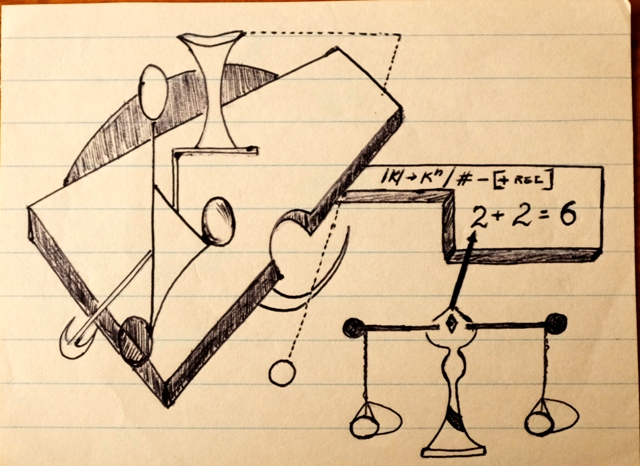 |K| → Kⁿ / # - [+ REC]
2 + 2 = 6